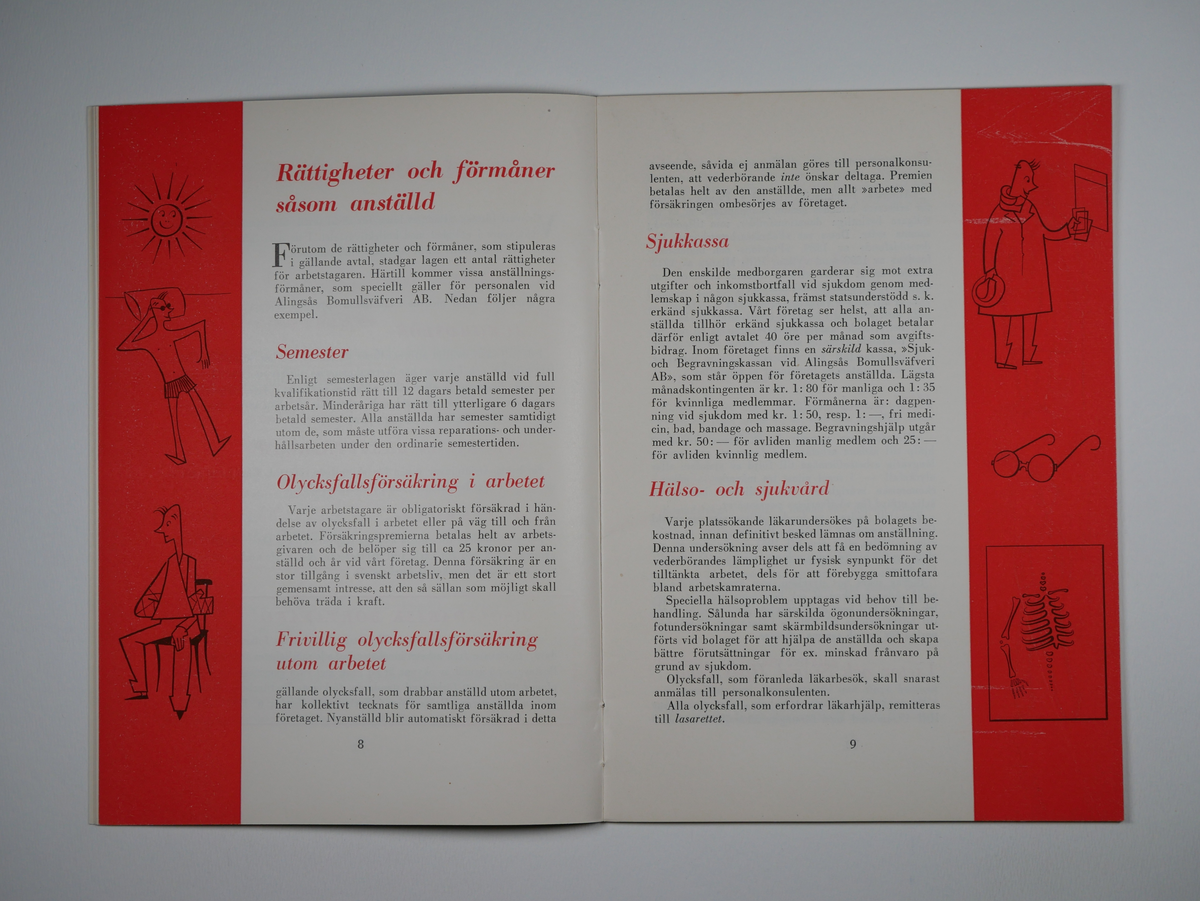 Rättigheter och förmåner
såsom anställd
Förutom de rättigheter och förmåner, som stipuleras
i gällande avtal, stadgar lagen ett antal rättigheter
för arbetstagaren. Härtill kommer vissa anställnings-
förmåner, som speciellt gäller för personalen vid
Alingsås Bomullsväfveri AB. Nedan följer några
exempel.
Semester
Enligt semesterlagen äger varje anställd vid full
kvalifikationstid rätt till 12 dagars betald semester per
arbetsår. Minderåriga har rätt till ytterligare 6 dagars
betald semester. Alla anställda har semester samtidigt
utom de, som måste utföra vissa reparations- och under-
hållsarbeten under den ordinarie semestertiden.
Olycksfallsförsäkring i arbetet
Varje arbetstagare är obligatoriskt försäkrad i hän-
delse av olycksfall i arbetet eller på väg till och från
arbetet. Försäkringspremierna betalas helt av arbets-
givaren och de belöper sig till ca 25 kronor per an-
ställd och år vid vårt företag. Denna försäkring är en
stor tillgång i svenskt arbetsliv, men det är ett stort
gemensamt intresse, att den så sällan som möjligt skall
behöva träda i kraft.
Frivillig olycksfallsförsäkring
utom arbetet
gällande olycksfall, som drabbar anställd utom arbetet,
har kollektivt tecknats för samtliga anställda inom
företaget. Nyanställd blir automatiskt försäkrad i detta
8
avseende, såvida ej anmälan göres till personalkonsu-
lenten, att vederbörande inte önskar deltaga. Premien
betalas helt av den anställde, men allt »arbete» med
försäkringen ombesörjes av företaget.
Sjukkassa
Den enskilde medborgaren garderar sig mot extra
utgifter och inkomstbortfall vid sjukdom genom med-
lemskap i någon sjukkassa, främst statsunderstödd s. k.
erkänd sjukkassa. Vårt företag ser helst, att alla an-
ställda tillhör erkänd sjukkassa och bolaget betalar
därför enligt avtalet 40 öre per månad som avgifts-
bidrag. Inom företaget finns en särskild kassa, »Sjuk-
och Begravningskassan vid Alingsås Bomullsväfveri
AB», som står öppen för företagets anställda. Lägsta
månadskontingenten är kr. 1: 80 för manliga och 1: 35
för kvinnliga medlemmar. Förmånerna är: dagpen-
ning vid sjukdom med kr. 1: 50, resp. 1: —, fri medi-
cin, bad, bandage och massage. Begravningshjälp utgår
med kr. 50: — för avliden manlig medlem och 25: —
för avliden kvinnlig medlem.
Hälso- och sjukvård
Varje platssökande läkarundersökes på bolagets be-
kostnad, innan definitivt besked lämnas om anställning.
Denna undersökning avser dels att få en bedömning av
vederbörandes lämplighet ur fysisk synpunkt för det
tilltänkta arbetet, dels för att förebygga smittofara
bland arbetskamraterna.
Speciella hälsoproblem upptagas vid behov till be-
handling. Sålunda har särskilda ögonundersökningar,
fotundersökningar samt skärmbildsundersökningar ut-
förts vid bolaget för att hjälpa de anställda och skapa
bättre förutsättningar för ex. minskad frånvaro på
grund av sjukdom.
Olycksfall, som föranleda läkarbesök, skall snarast
anmälas till personalkonsulenten.
Alla olycksfall, som erfordrar läkarhjälp, remitteras
till lasarettet.
9